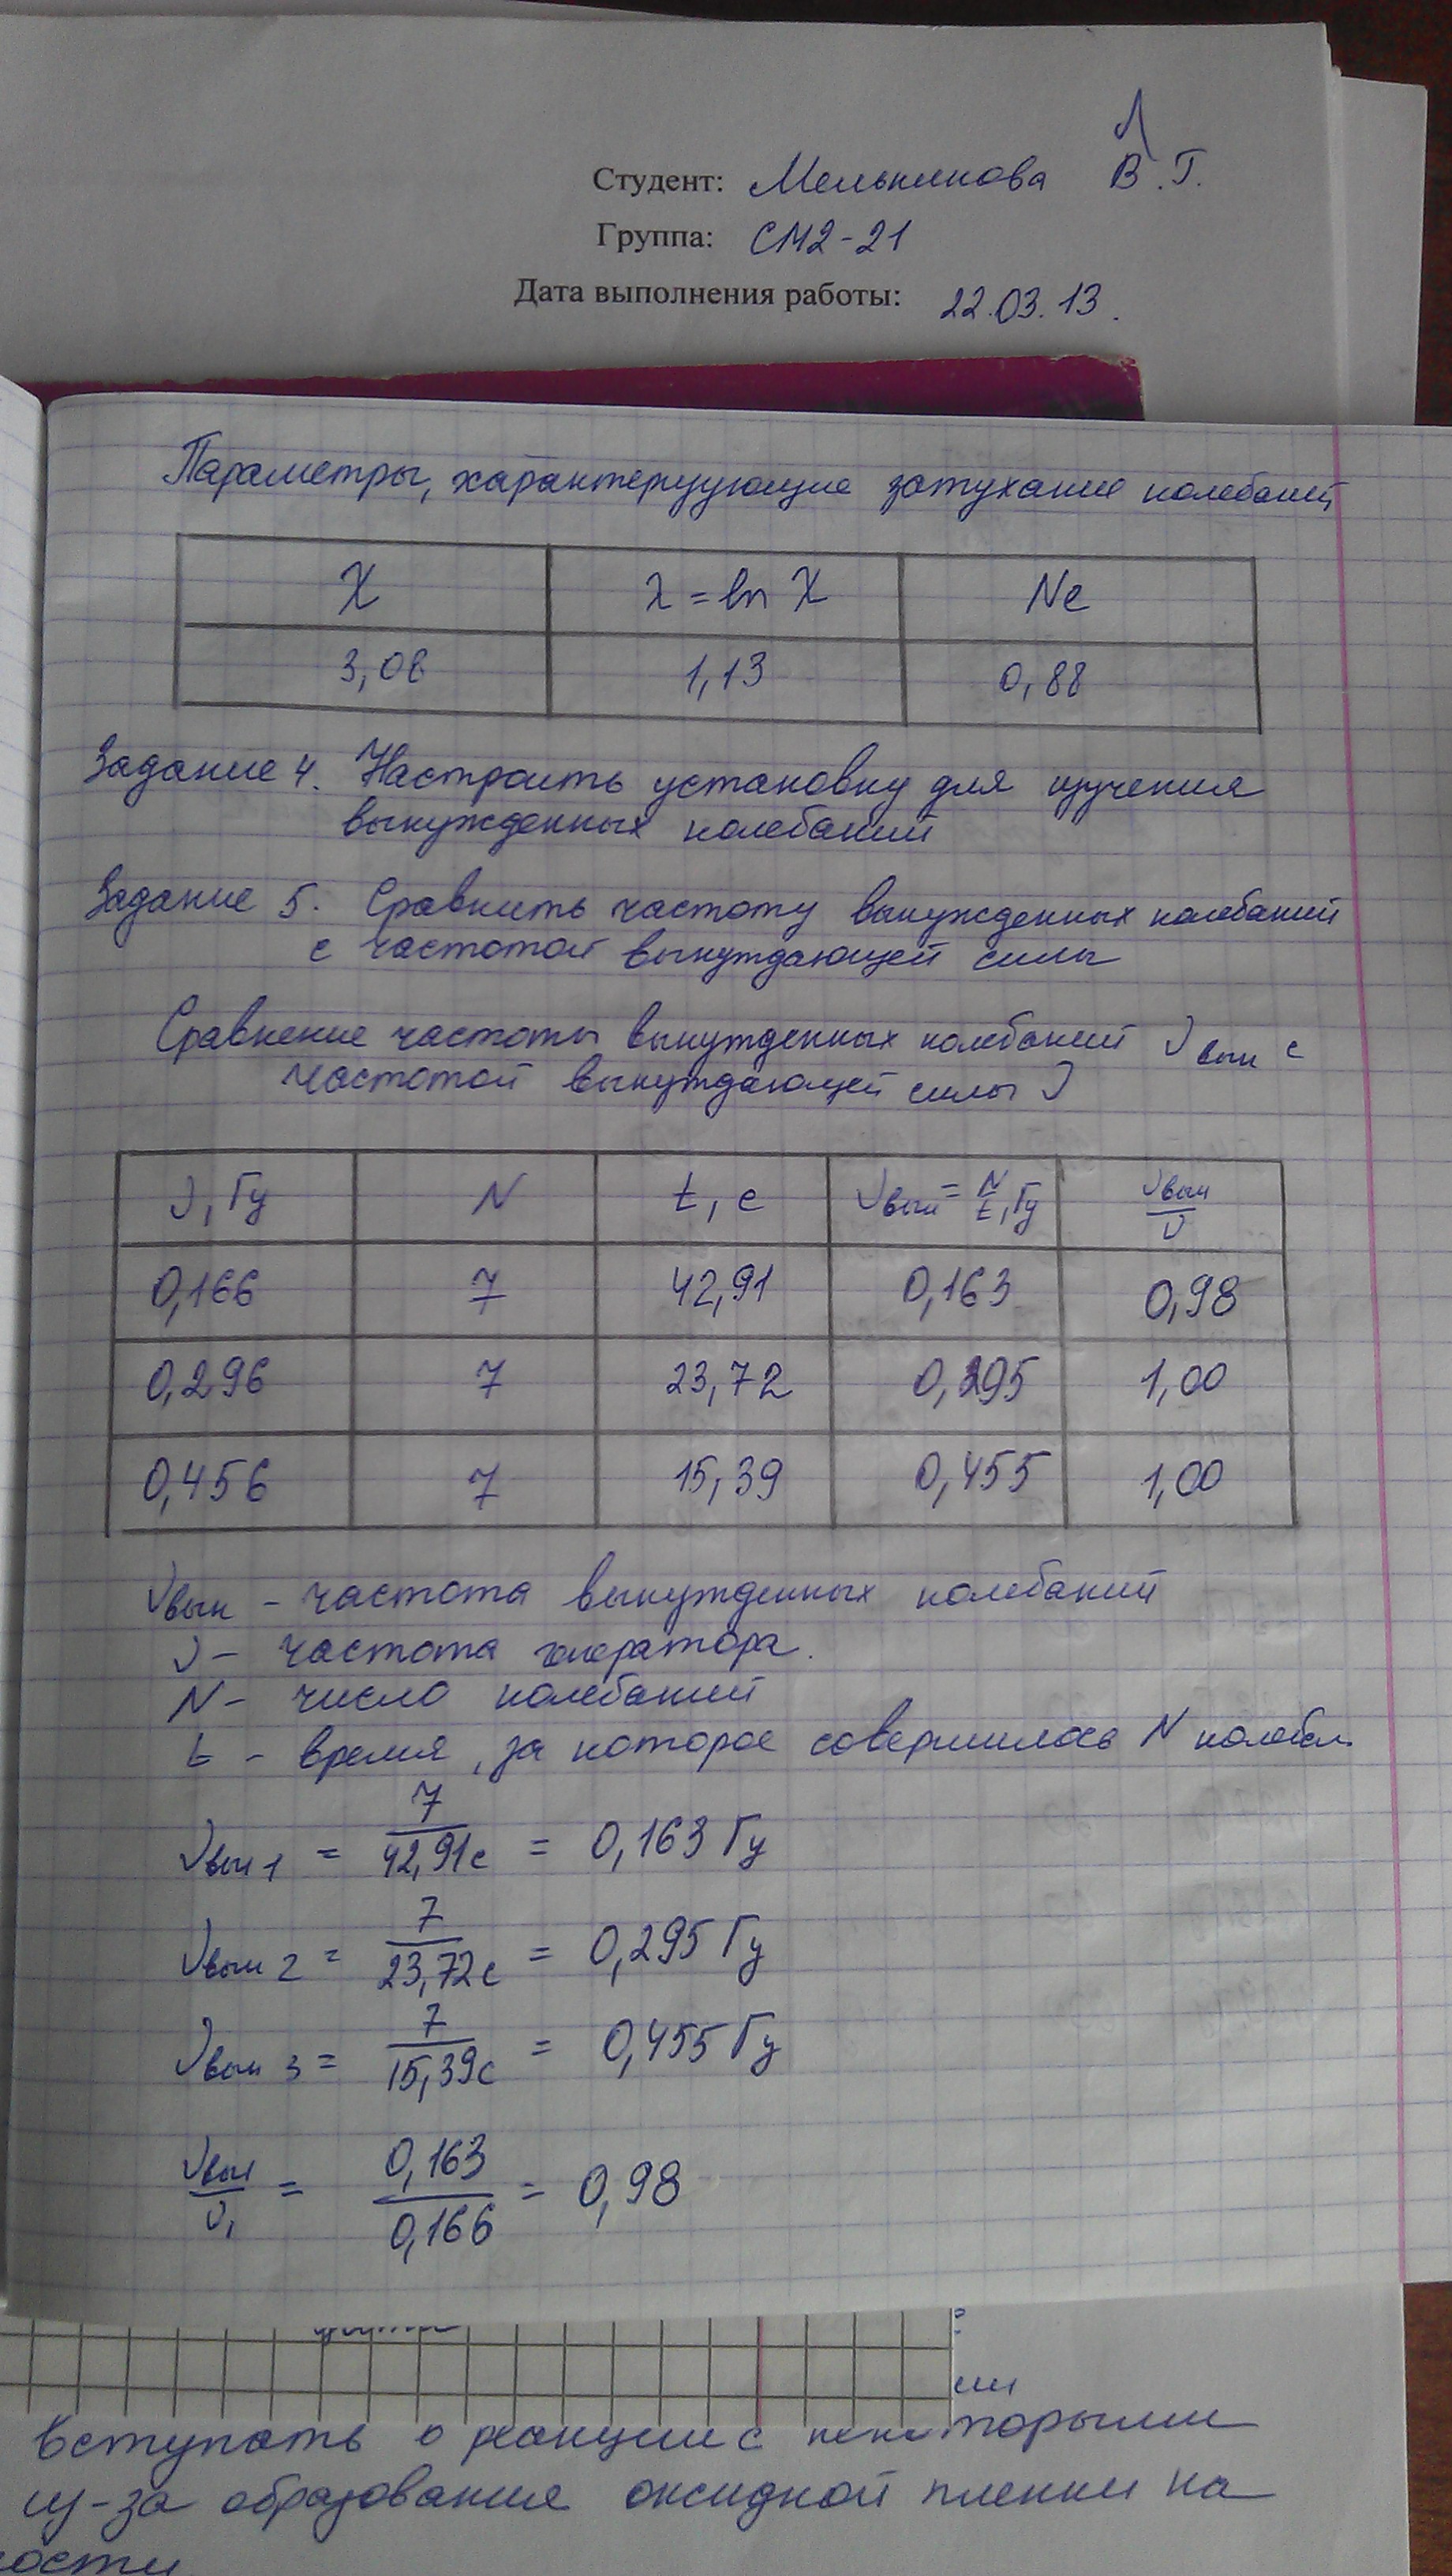 Л
Студент: Мельникова В.Г.
Группа: СМ2-21
Дата выполнения работы: 22.03.13.
Параметры, характеризующие затухание колебаний
X λ = ln X Ne
3,08 1,13 0,88
Задание 4. Настроить установку для изучения
вынужденных колебаний
Задание 5. Сравнить частоту вынужденных колебаний
с частотой вынуждающей силы
Сравнение частоты вынужденных колебаний ν вын с
частотой вынуждающей силы ν
ν, Гц N t, с νвын = N/t, Гц νвын/ν
0,166 7 42,91 0,163 0,98
0,296 7 23,72 0,295 1,00
0,456 7 15,39 0,455 1,00
νвын - частота вынужденных колебаний
ν - частота генератора.
N - число колебаний
t - время, за которое совершилось N колебан.
νвын 1 = 7/42,91с = 0,163 Гц
νвын 2 = 7/23,72с = 0,295 Гц
νвын 3 = 7/15,39с = 0,455 Гц
νвын/ν1 = 0,163/0,166 = 0,98
ии
вступать в реакции с некоторыми
из-за образования оксидной пленки на
ости